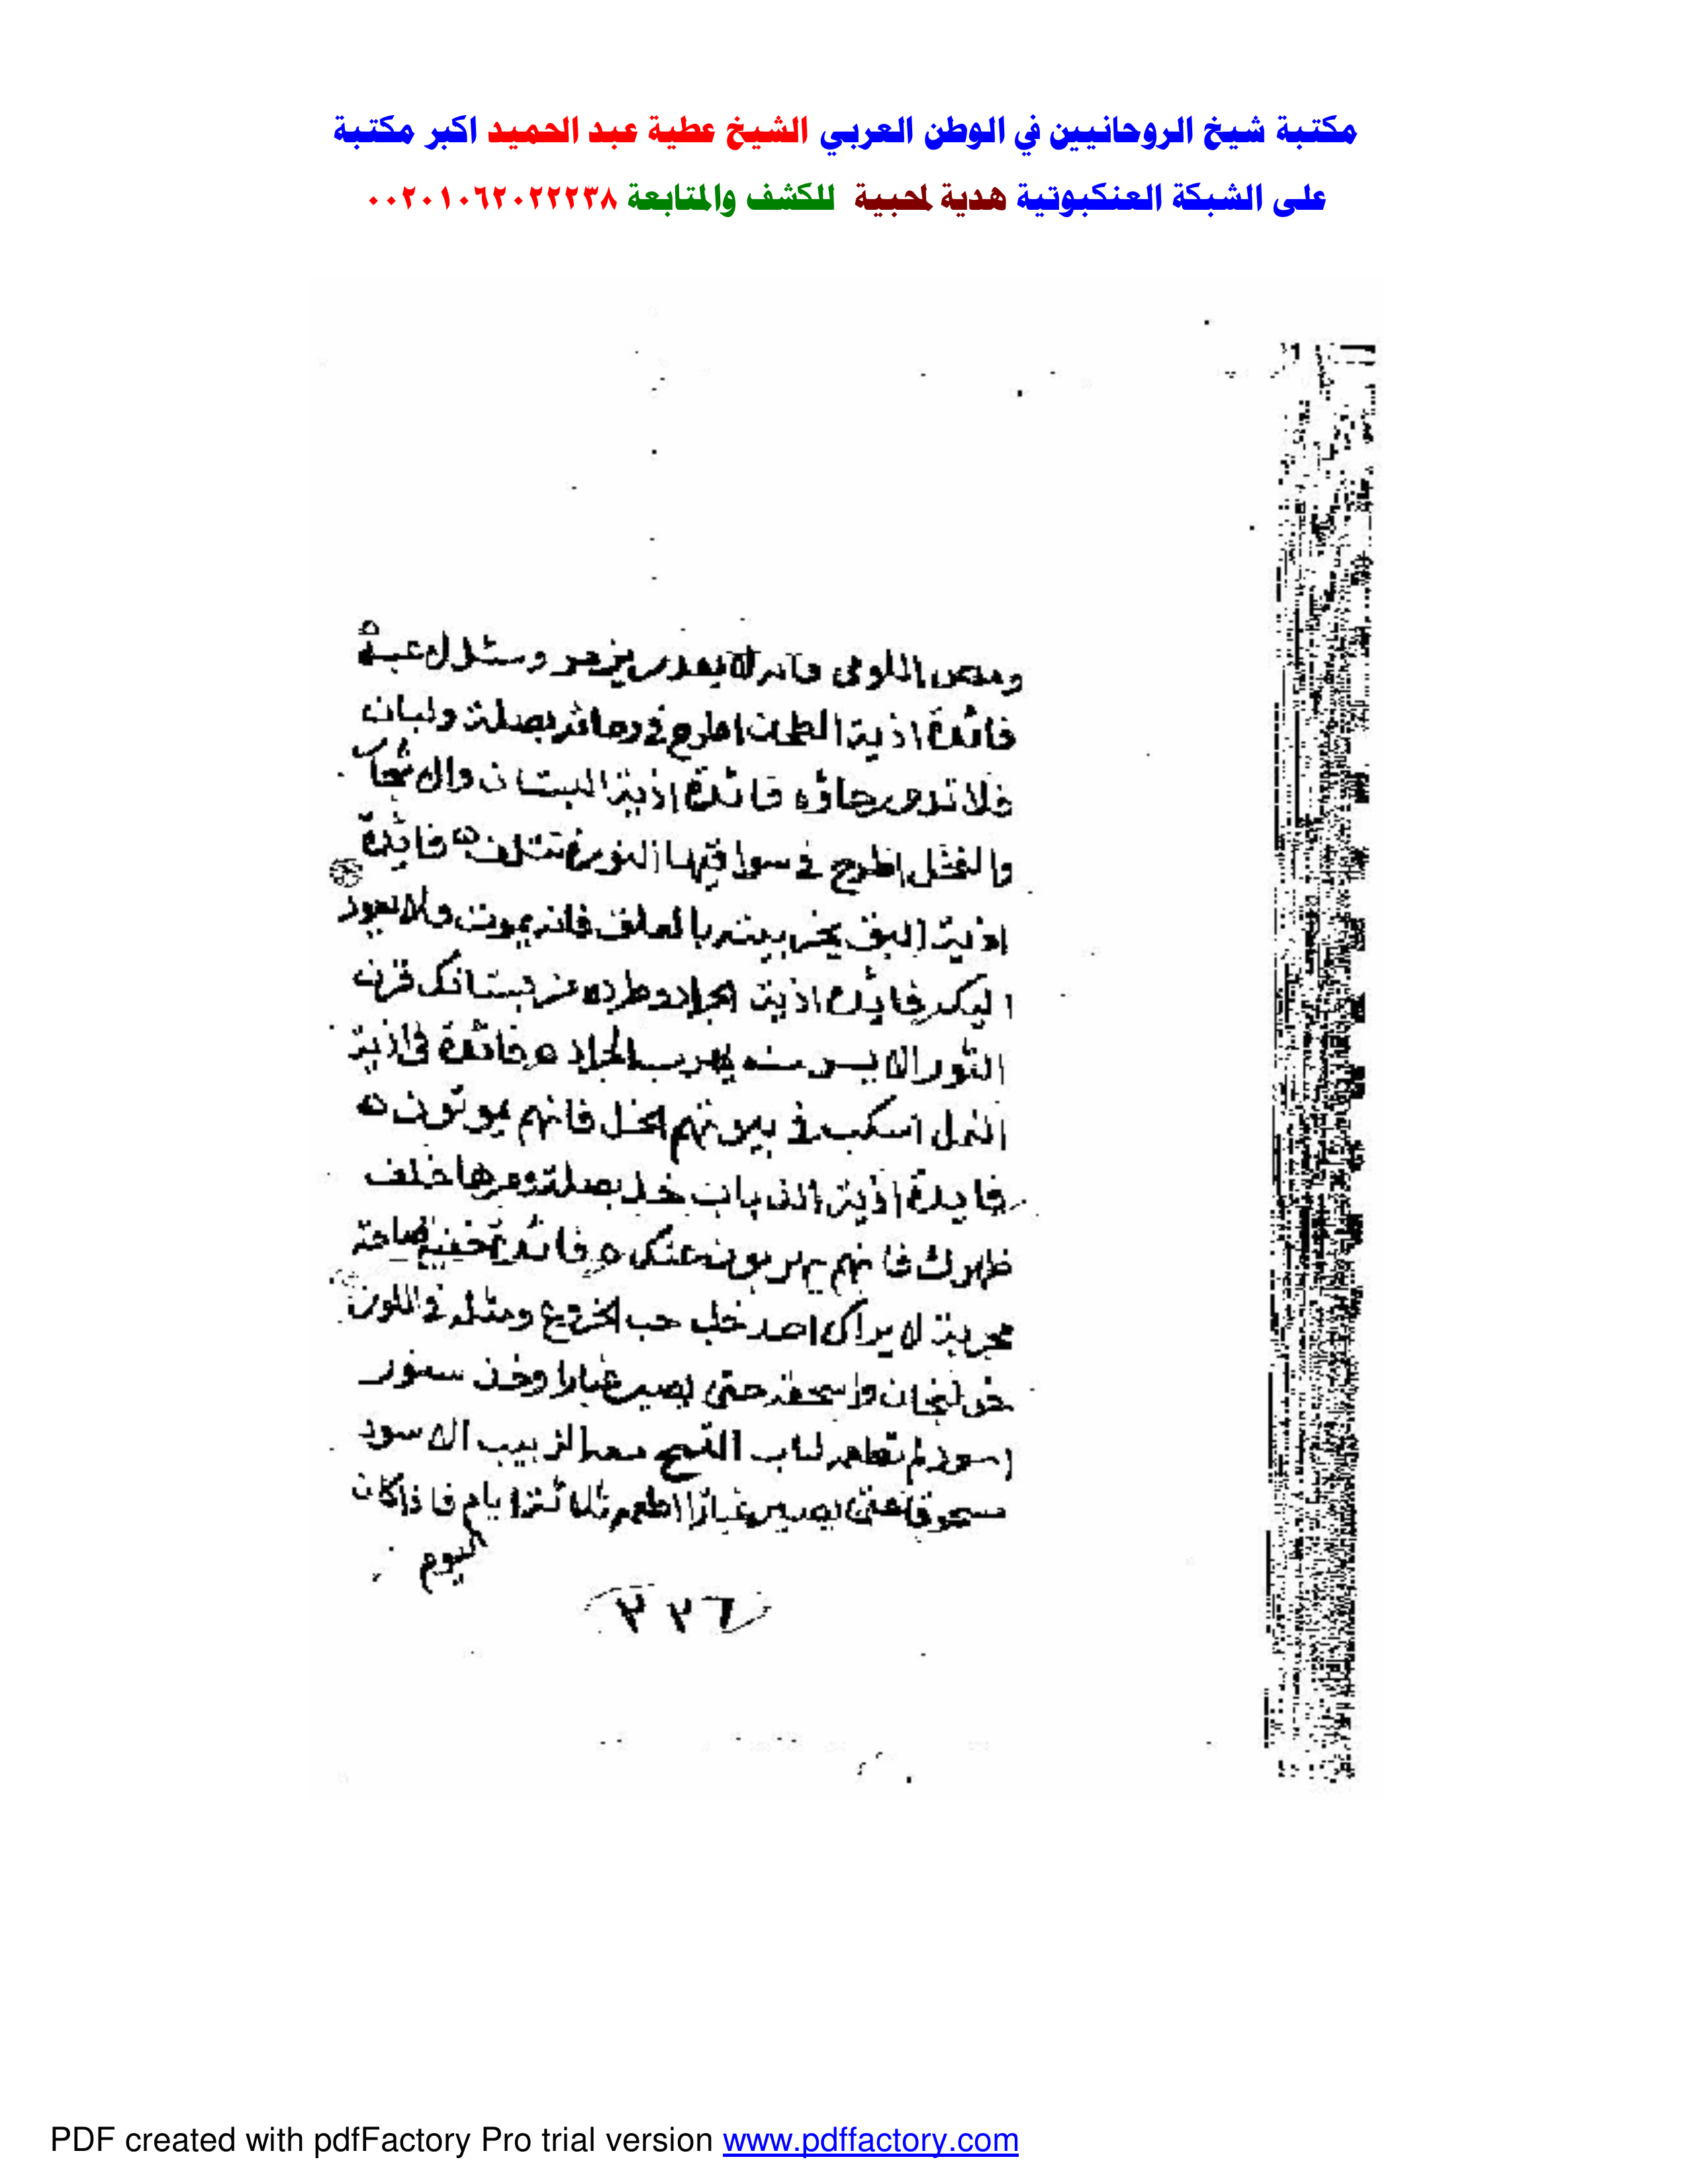 مكتبة شيخ الروحانيين في الوطن العربي الشيخ عطية عبد الحميد اكبر مكتبة
على الشبكة العنكبوتية هدية لمحبية للكشف والمتابعة ٠٠٢٠١٠٦٢٠٢٢٢٣٨
فائدة اذية الطحان اطرح في دمائر بصلة ولبان
فلا تدور رحاؤه فائدة اذية البستان والاشجار
والنخل اطرح في سواقيها النورة تتلف فايدة
اذية البق يخر بيته بالعلق فانه يموت ولا يعود
اليك فايدة اذية الجراد وطرده عن بستانك قرن
الثور الايسر منه يهرب الجراد فائدة في اذية
النمل اسكب في بيوتهم الخل فانهم يموتون
فايدة اذية الذباب خذ بصلة ومرها خلف
ظهرك فانهم يهربون عنك فائدة خفية
مجربة لا يراك احد خذ حب الخروع ومثله في اللون
خولنجان واسحقه حتى يصير غبارا وخذ سنور
اسود ثم تطعمه لباب القمح معه الزبيب الاسود
مسحوقا حتى يصير غبارا اطعم ثلاثة ايام فاذا كان
اليوم
٢٢٦
PDF created with pdfFactory Pro trial version www.pdffactory.com